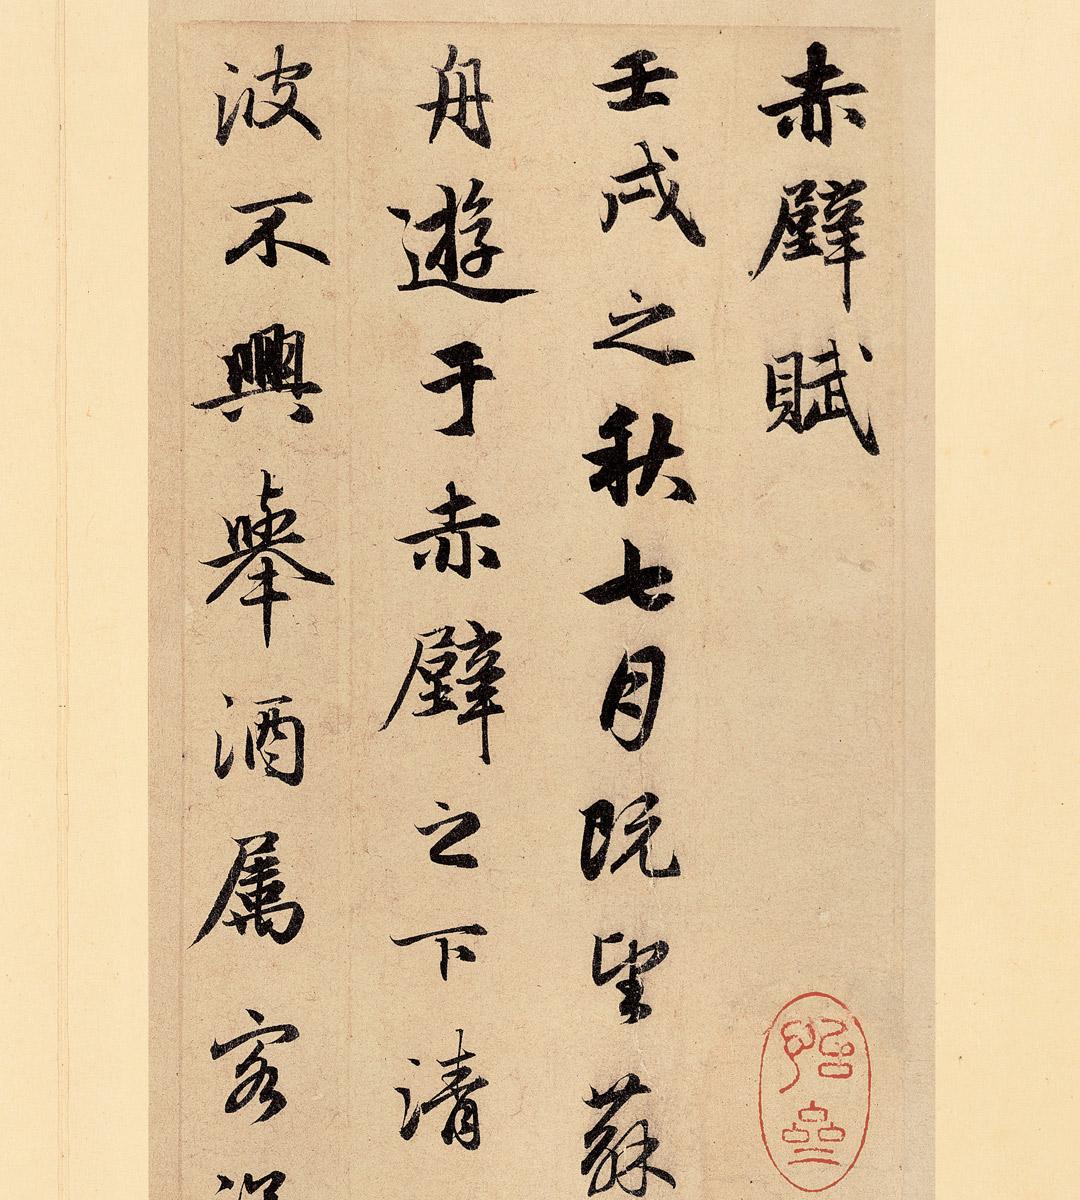 赤壁賦
壬戌之秋七月既望蘇
舟遊于赤壁之下清
波不興舉酒属客